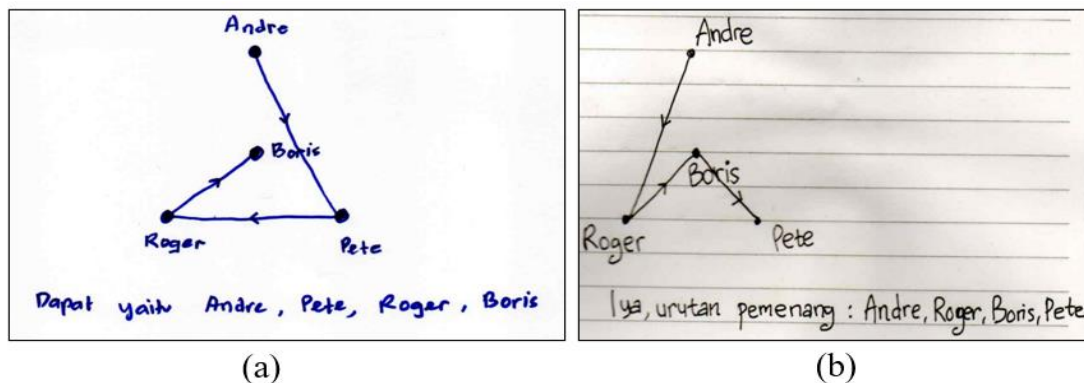 Andre
Boris
Roger
Pete
Dapat yaitu Andre, Pete, Roger, Boris
(a)
Andre
Boris
Roger
Pete
Iya, urutan pemenang : Andre, Roger, Boris, Pete
(b)